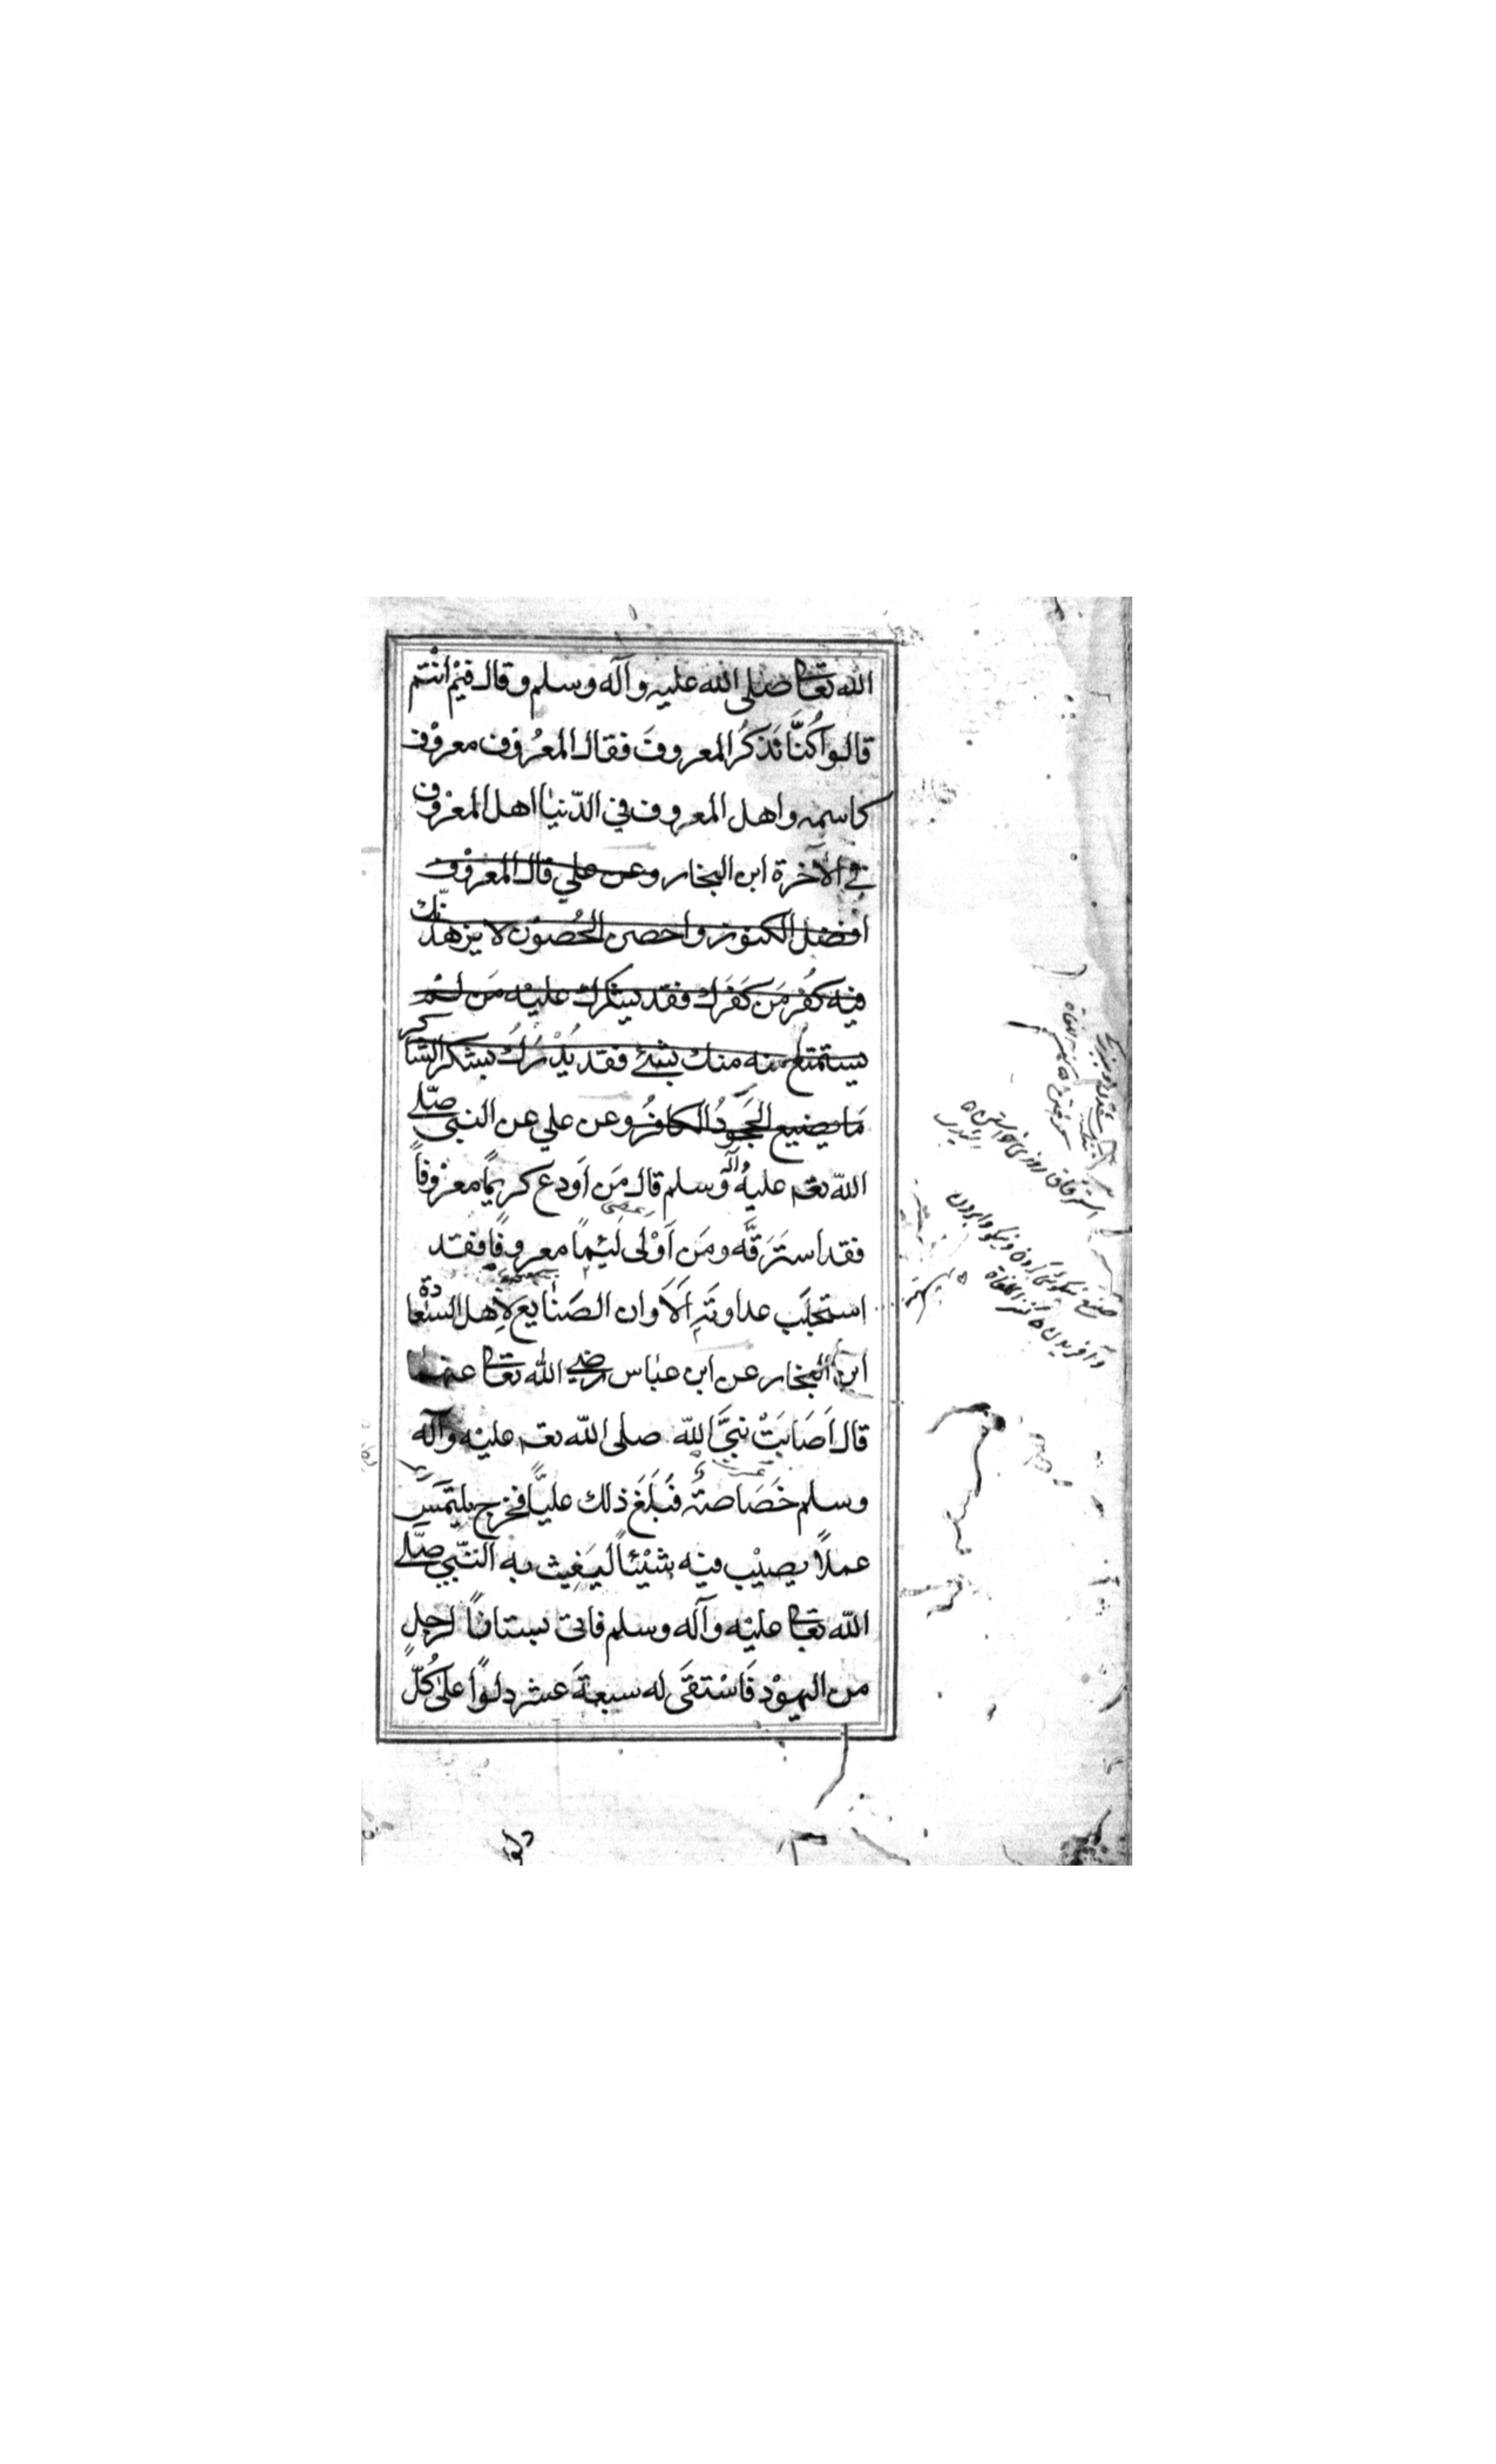 الله تعالى صلى الله عليه وآله وسلم وقال فيم انتم
قالوا كُنَّا نَذكرُ المعروفَ فقال المعرُوف معروف
كاسمه واهل المعروف في الدّنيا اهل المعروف
في الآخرة ابن النجار وعن علي قال المعروف
افضل الكنوز واحصن الحُصون لا يزهدنّك
فيه كفُر مَن كَفَرك فقد يشكرك عليه مَن لم
يستمتع منه منك بشئ فقد يُدْرَك بشكر الشاكر
مَا يضيع الجَحودُ الكافرُ وعن علي عن النبي صلّى
اللّه تعـ عليه وآله وسلم قال مَن اَودع كريمًا معروفاً
فقد استَرَقَّه ومَن اَوْلى لَئيمًا معروفًا فقد
استجلَب عداوتَه اَلَا وان الصَنايع لِاهل السعادة
ابن النجار عن ابن عباس رضي الله تعالى عنهما
قال اَصَابَتْ نبيَّ اللّه صلى اللّه تعـ عليه وآله
وسلم خَصَاصة فَبلَغَ ذلك عليًّا فخرج يلتمسَ
عملًا يصيْب فيه شيْئاً ليَغيث به النّبي صلّى
اللّه تعالى عليه وآله وسلم فاتى بستانًا لرجلٍ
من اليهوْد فَاسْتقَى له سبعةَ عشر دلوًا على كُلّ
صنع نیکوئی کردن و نیکو
کنز اللغاة
دلو